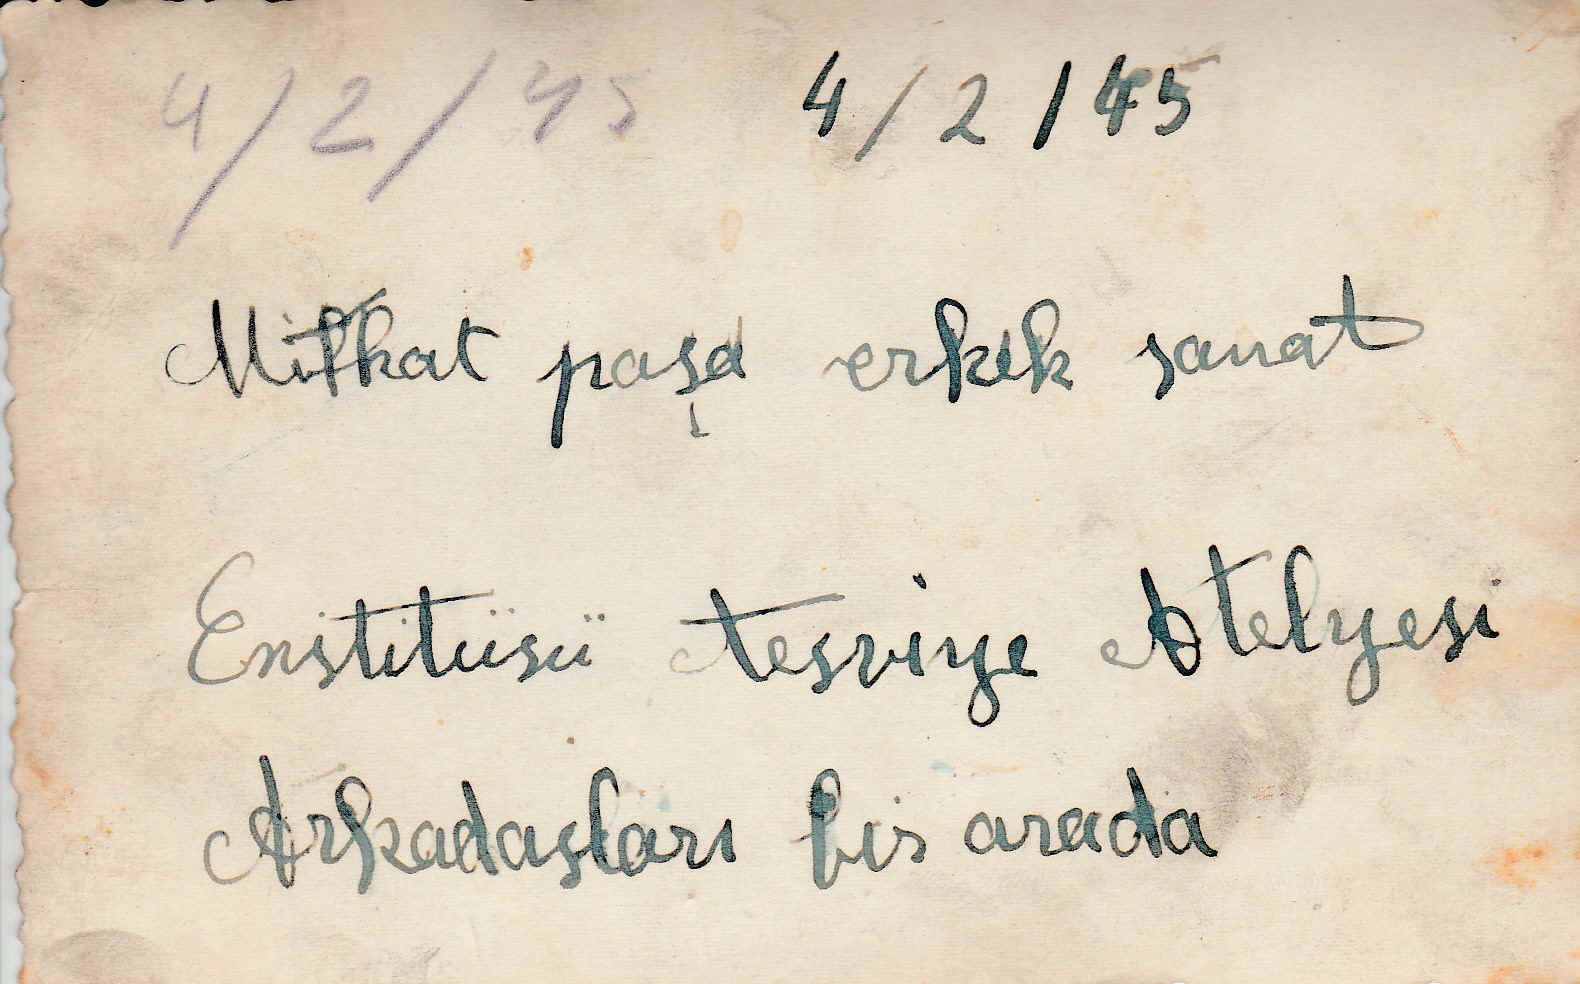 4/2/45 4/2/45
Mithat paşa erkek sanat
Enstitüsü tesviye Atelyesi
Arkadaşları bir arada